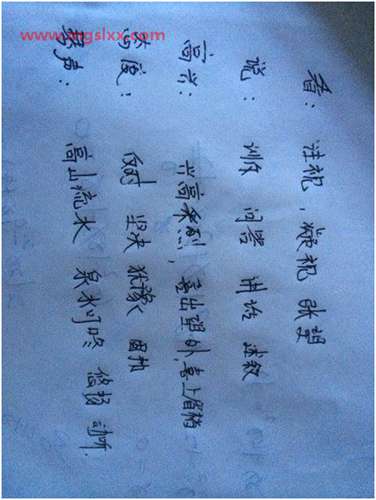 看： 注视，凝视 张望
说： 训斥 问答 讲话 述叙
高兴： 兴高采烈，喜出望外，喜上眉梢
态度： 反对 坚决 犹豫 固执
琴声： 高山流水 泉水叮咚 悠扬 动听.